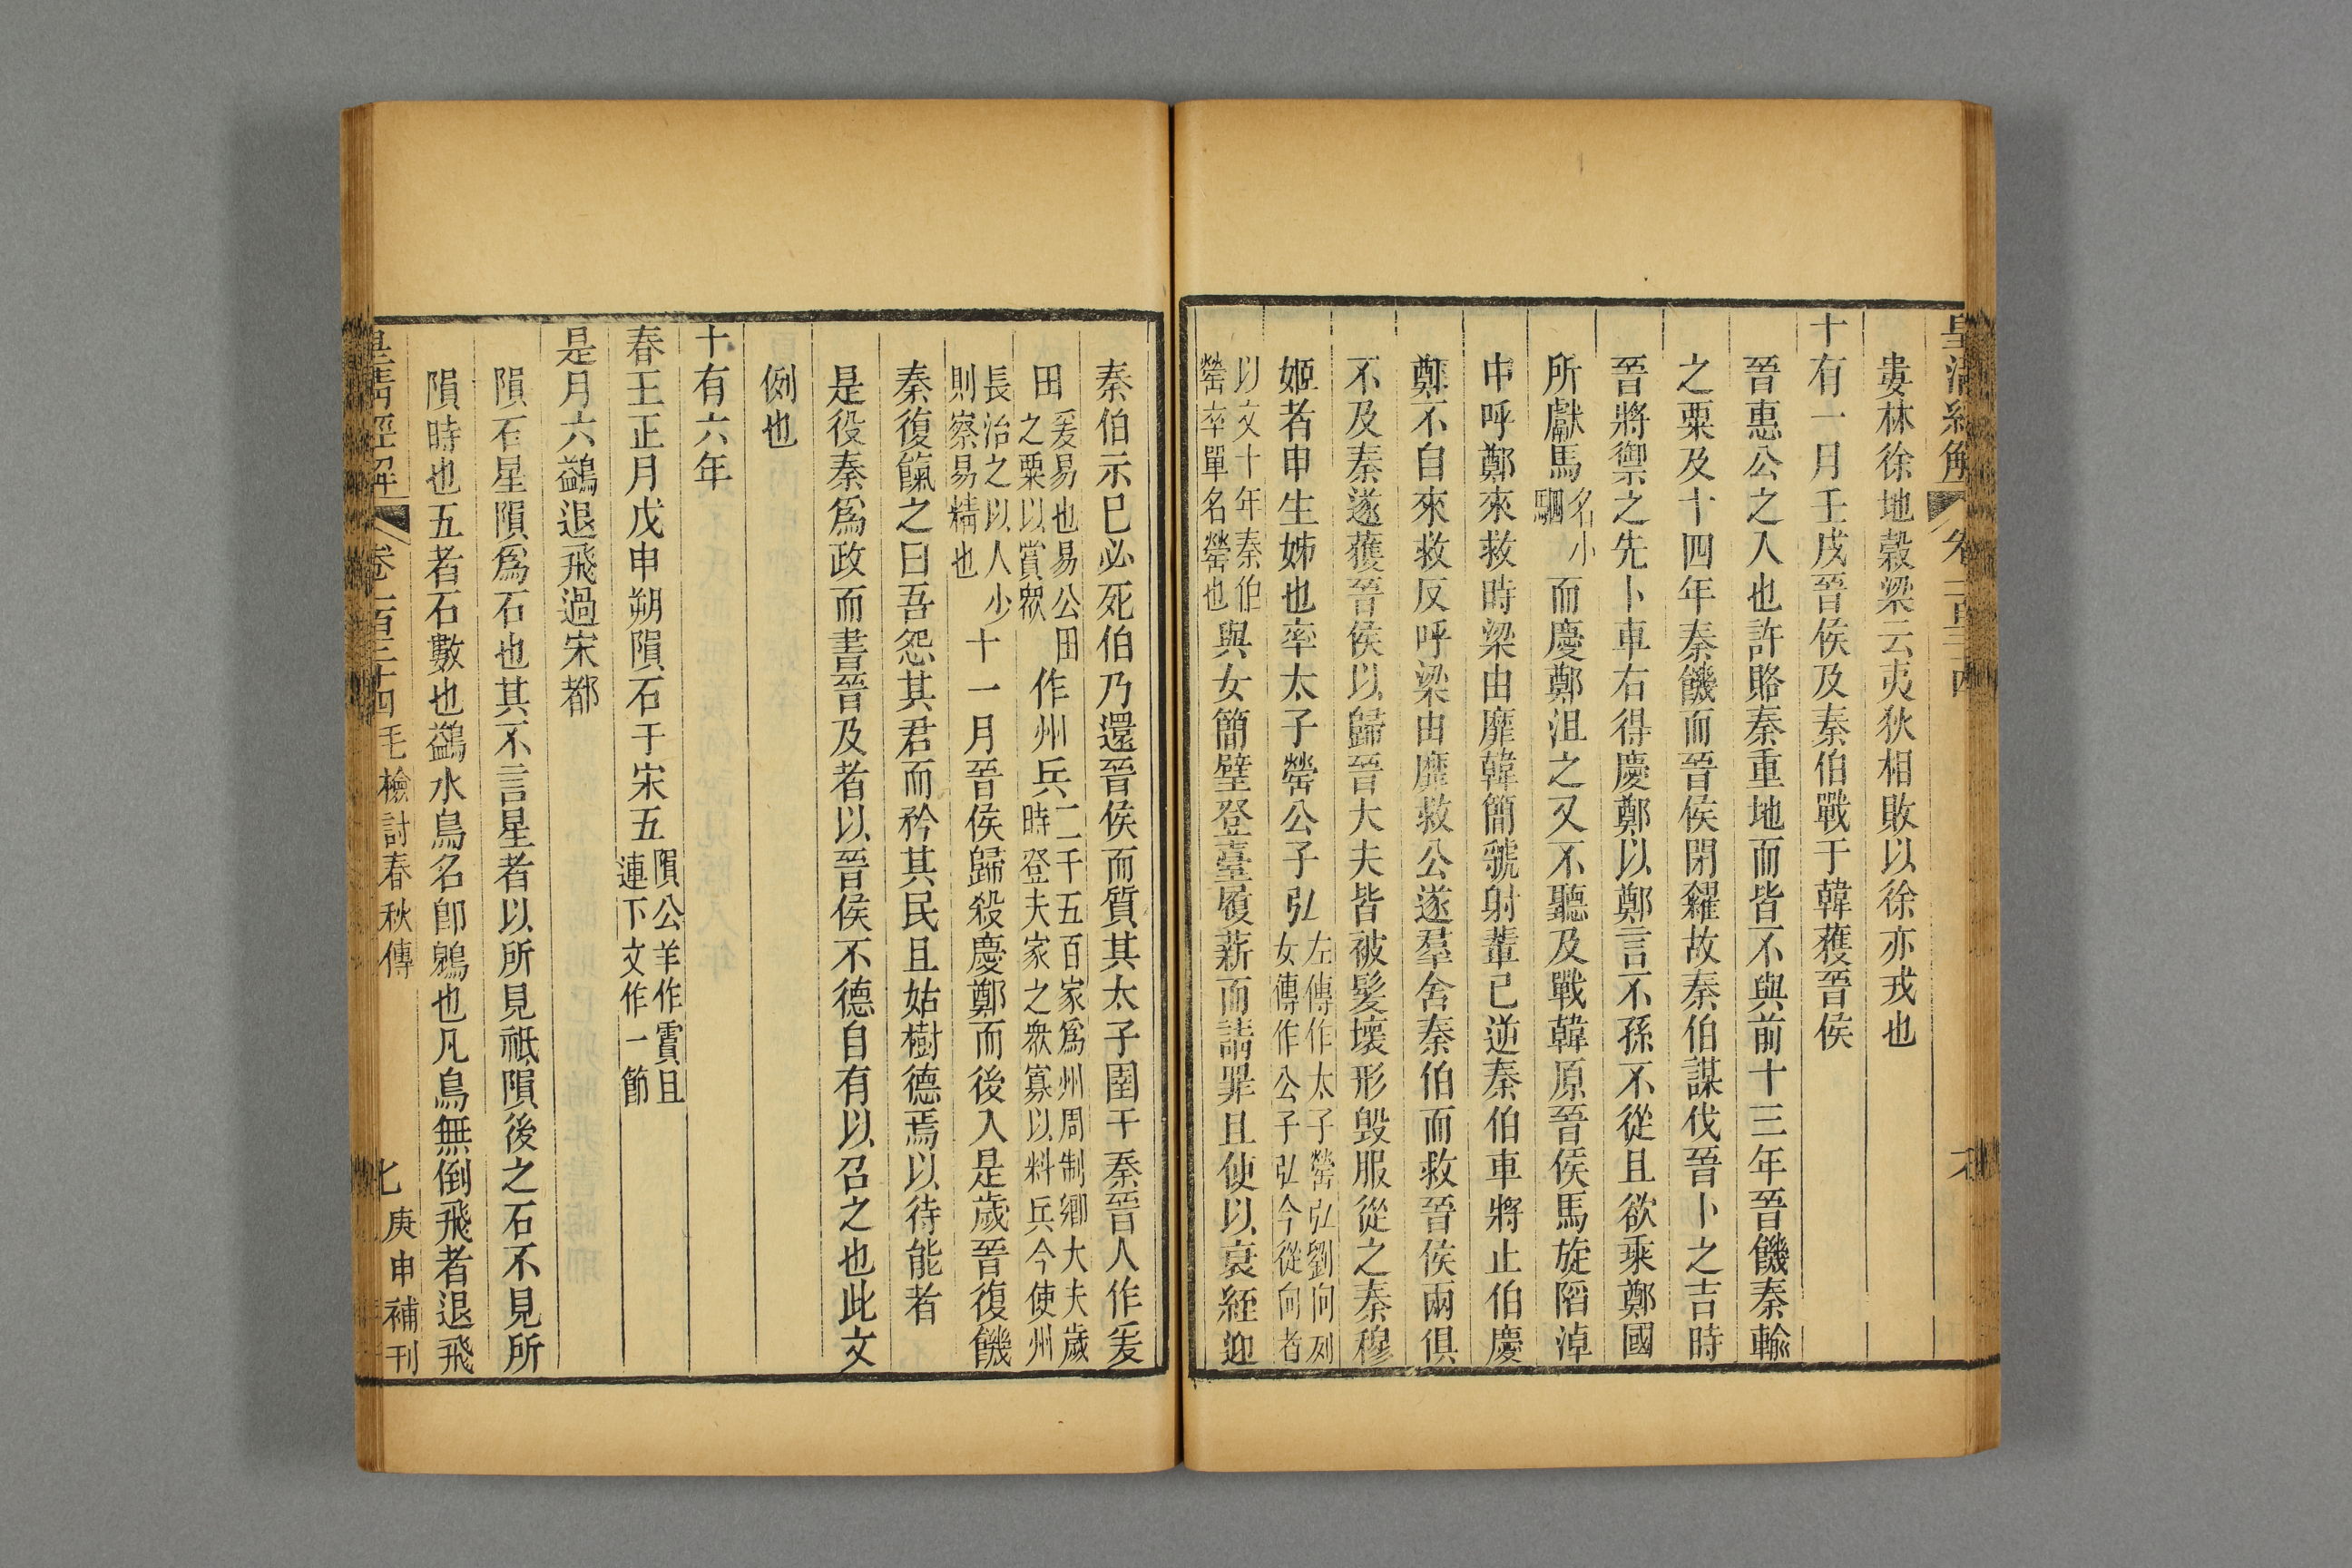 婁林徐地穀梁云夷狄相敗以徐亦戎也
十有一月壬戌晉侯及秦伯戰于韓獲晉侯
晉惠公之入也許賂秦重地而皆不與前十三年晉饑秦輸
之粟及十四年秦饑而晉侯閉糴故秦伯謀伐晉卜之吉時
晉將禦之先卜車右得慶鄭以鄭言不孫不從且欲乘鄭國
所獻馬名小駟而慶鄭沮之又不聽及戰韓原晉侯馬旋陷淖
中呼鄭來救時梁由靡韓簡虢射輩已逆秦伯車將止伯慶
鄭不自來救反呼梁由靡救公遂羣舍秦伯而救晉侯兩俱
不及秦遂獲晉侯以歸晉大夫皆被髮壞形毀服從之秦穆
姬者申生姊也率太子罃公子弘左傳作太子罃弘劉向列女傳作公子弘今從向者
以文十年秦伯罃卒單名罃也與女簡璧登臺履薪而請罪且使以衰絰迎
秦伯示已必死伯乃還晉侯而質其太子圉于秦晉人作爰
田爰易也易公田之粟以賞衆作州兵二千五百家爲州周制鄉大夫歲時登夫家之衆寡以料兵今使州
長治之以人少則察易精也十一月晉侯歸殺慶鄭而後入是歲晉復饑
秦復餼之曰吾怨其君而矜其民且姑樹德焉以待能者
是役秦爲政而書晉及者以晉侯不德自有以召之也此文
例也
十有六年
春王正月戊申朔隕石于宋五隕公羊作霣且連下文作一節
是月六鷁退飛過宋都
隕石星隕爲石也其不言星者以所見祇隕後之石不見所
隕時也五者石數也鷁水鳥名卽鶂也凡鳥無倒飛者退飛
皇清經解 卷一百三十四 毛檢討春秋傳 七 庚申補刊